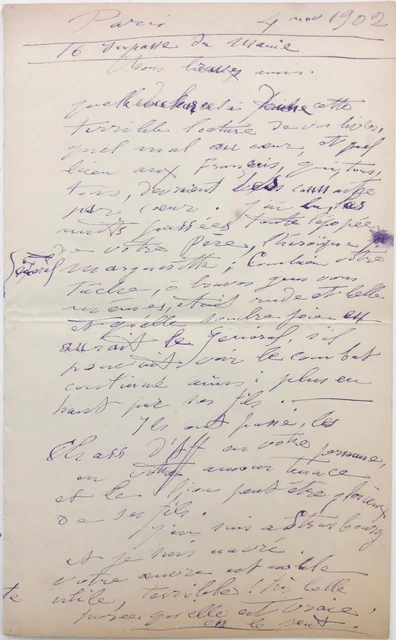 Paris 4 nov 1902
16 impasse du Maine
Mes braves amis.
quelle
terrible lecture de vos livres,
quel mal au cœur, et quel
bien aux Français, qui tous,
tous, devraient les connaître
par cœur. J'ai lu, les
nuits passées toute l'épopée
de votre Père, l'héroïque G
Margueritte; Combien votre
tâche, ô braves que vous
mêmes, était rude et belle
et quelle joie en
aurait le Général, s'il
pouvait voir le combat
continué ainsi plus en
haut par ses fils.
Ils ont passé, les
Chass d'Aff en votre personne,
en votre amour tenace
et le peut être glorieux
de ses fils.
J'en suis à Strasbourg
et je suis navré.
Votre œuvre est noble
utile terrible! très belle
puisqu'elle est vraie!
on le sent!